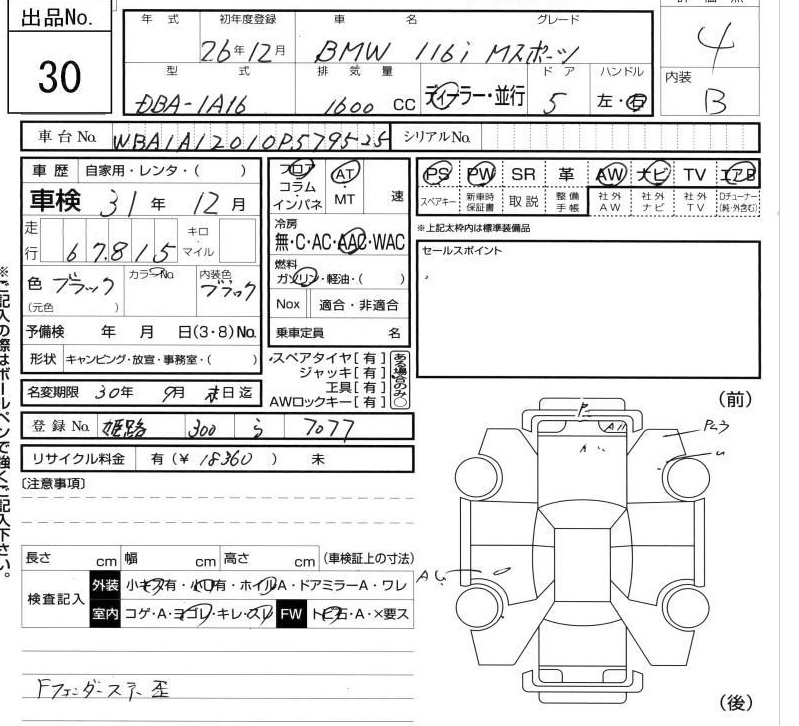 出品No.
30
年 式 初年度登録 車 名 グレード
26年12月 BMW 116i Mスポーツ
型 式 排 気 量 ド ア ハンドル
DBA-1A16 1600 CC ディーラー・並行 5 左・右
4
内装
B
車台No. WBA1A12010P579525 シリアルNo.
車 歴 自家用・レンタ・( )
車検 31 年 12 月
走行 67,815 キロ・マイル
色 ブラック カラーNo. 内装色 ブラック
(元色 )
予備検 年 月 日(3・8)No.
形状 キャンピング・放宣・事務室・( )
名変期限 30年 9月 末日迄
フロア コラム インパネ AT・MT 速
冷房
無・C・AC・AAC・WAC
燃料
ガソリン・軽油・( )
Nox 適合・非適合
乗車定員 名
スペアタイヤ[有]
ジャッキ[有]
工具[有]
AWロックキー[有]
ある場合のみ○
PS PW SR 革 AW ナビ TV エアB
スペアキー 新車時保証書 取説 整備手帳 社外AW 社外ナビ 社外TV Dチューナー(純・外含む)
※上記太枠内は標準装備品
セールスポイント
登録No. 姫路 300 ら 7077
リサイクル料金 有(¥ 18360 ) 未
〔注意事項〕
長さ cm 幅 cm 高さ cm (車検証上の寸法)
検査記入
外装 小キズ有・小凹有・ホイルA・ドアミラーA・ワレ
室内 コゲ・A・ヨゴレ・キレ・スレ FW トビ石・A・×要ス
Fフェンダーステー歪
(前)
P
A11
A
P-3
u
A U
(後)
※ご記入の際はボールペンで強くご記入下さい。